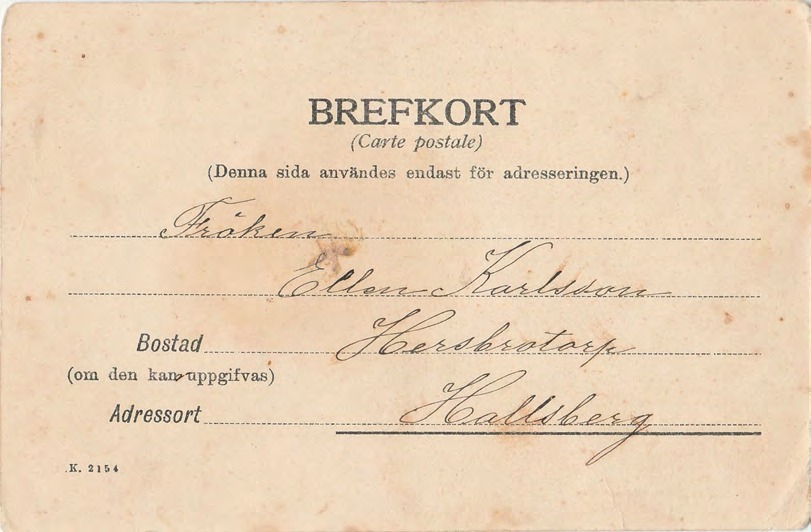 BREFKORT
(Carte postale)
(Denna sida användes endast för adresseringen.)
Fröken
Ellen Karlsson
Bostad Hersbrotorp
(om den kan uppgifvas)
Adressort Hallsberg
K. 2154